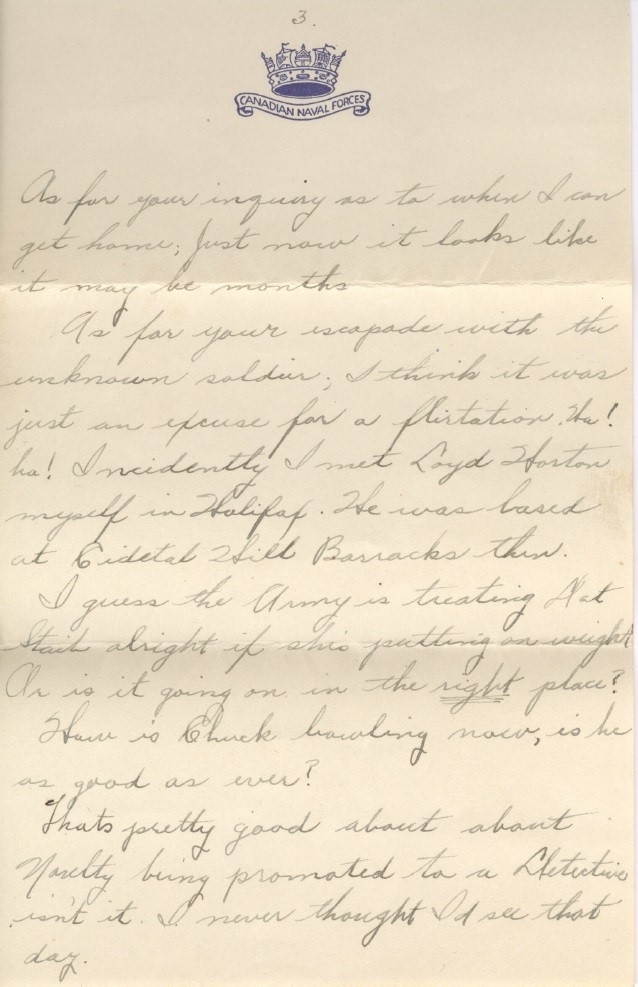 3.
CANADIAN NAVAL FORCES
As for your inquiry as to when I can
get home; Just now it looks like
it may be months
As for your escapade with the
unknown soldier; I think it was
just an excuse for a flirtation. Ha!
ha! Incidently I met Loyd Horton
myself in Halifax. He was based
at Hill Barracks then.
I guess the Army is treating
alright if shes putting on weight
Or is it going on in the right place?
How is Chuck bowling now, is he
as good as ever?
Thats pretty good about about
being promoted to a Detective
isn't it. I never thought I'd see that
day.